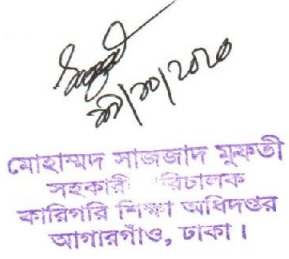 মোহাম্মদ সাজজাদ মুফতী
সহকারী রিচালক
কারিগরি শিক্ষা অধিদপ্তর
আগারগাঁও, ঢাকা।